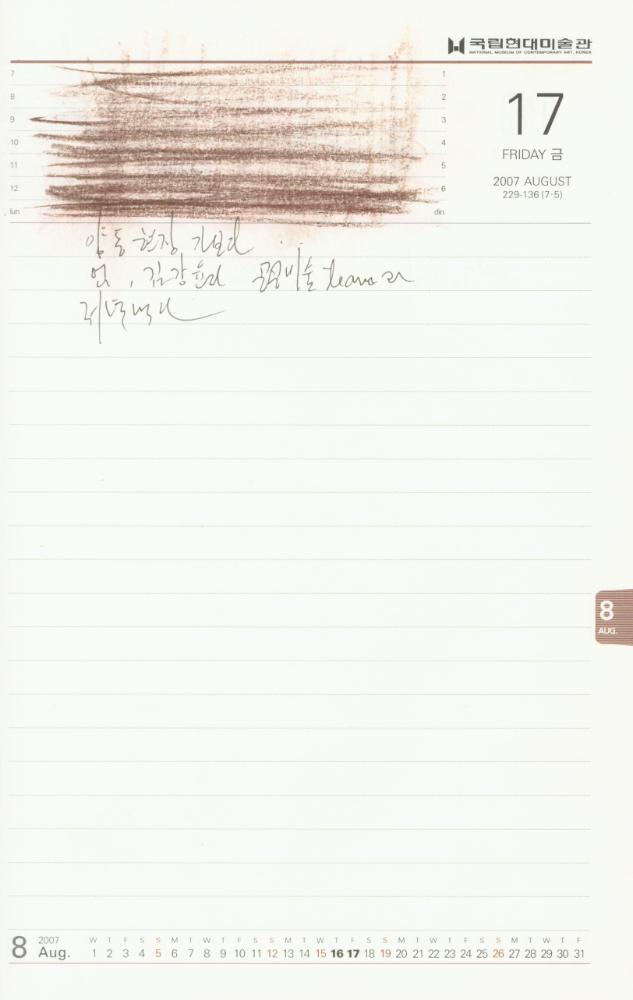 국립현대미술관
NATIONAL MUSEUM OF CONTEMPORARY ART, KOREA
7 1
8 2
9 3
10 4
11 5
12 6
lun. din.
17
FRIDAY 금
2007 AUGUST
229-136 (7·5)
양동 현장 가보다
김강 공공미술 leave
저녁먹다
8
AUG.
8 2007 Aug.
W T F S S M T W T F S S M T W T F S S M T W T F S S M T W T F
1 2 3 4 5 6 7 8 9 10 11 12 13 14 15 16 17 18 19 20 21 22 23 24 25 26 27 28 29 30 31